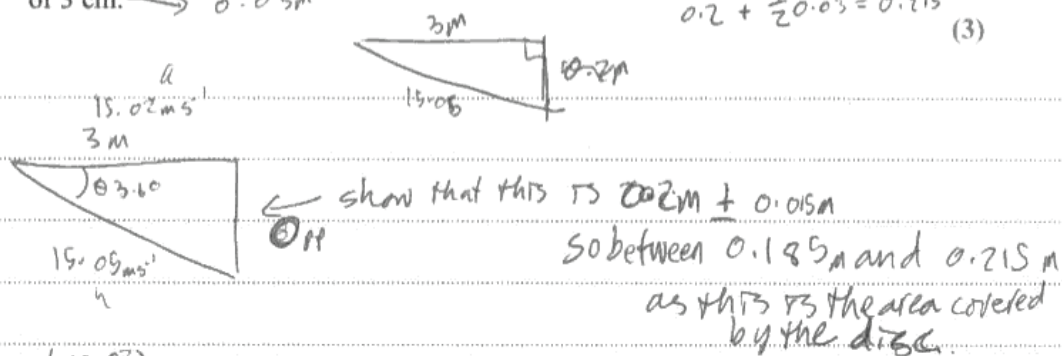 of 3 cm. → 0.03m
0.2 + ½0.03 = 0.215
(3)
3m
0.2m
15.05
a
15.02ms⁻¹
3m
θ3.60
← show that this is 0.2m ± 0.015m
opp
15.05ms⁻¹
h
so between 0.185m and 0.215m
as this is the area covered
by the disc.